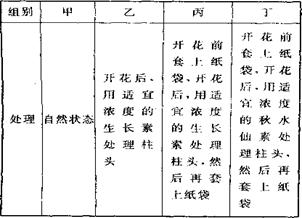 组别 甲 乙 丙 丁
处理
自然状态
开花后、
用适宜
浓度的
生长素
处理柱
头
开花前
套上纸
袋、开花
后,用适
宜浓度
的生长
素处理
柱头,然
后再套
上纸袋
开花前
套上纸
袋、开花
后,用适
宜浓度
的秋水
仙素处
理柱头、
然后再
套上纸
袋